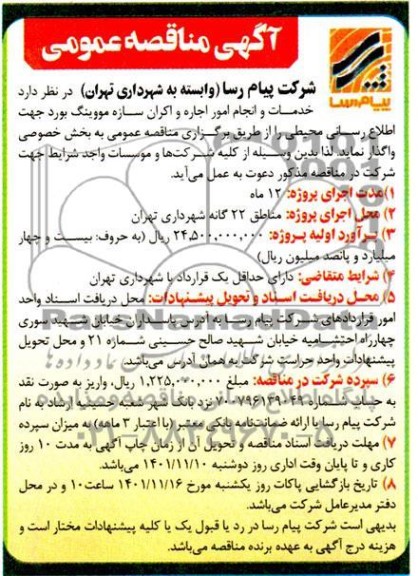 آگهی مناقصه عمومی
پیام رسا
شرکت پیام رسا (وابسته به شهرداری تهران) در نظر دارد
خدمات و انجام امور اجاره و اکران سازه مووینگ بورد جهت
اطلاع رسانی محیطی را از طریق برگزاری مناقصه عمومی به بخش خصوصی
واگذار نماید. لذا بدین وسیله از کلیه شرکت‌ها و موسسات واجد شرایط جهت
شرکت در مناقصه مذکور دعوت به عمل می‌آید.
۱) مدت اجرای پروژه: ۱۲ ماه
۲) محل اجرای پروژه: مناطق ۲۲ گانه شهرداری تهران
۳) برآورد اولیه پروژه: ۲۴,۵۰۰,۰۰۰,۰۰۰ ریال (به حروف: بیست و چهار
میلیارد و پانصد میلیون ریال)
۴) شرایط متقاضی: دارای حداقل یک قرارداد با شهرداری تهران
۵) محل دریافت اسناد و تحویل پیشنهادات: محل دریافت اسناد واحد
امور قراردادهای شرکت پیام رسا به آدرس پاسداران خیابان شهید سوری
چهارراه احتشامیه خیابان شهید صالح حسینی شماره ۲۱ و محل تحویل
پیشنهادات واحد حراست شرکت به همان آدرس می‌باشد.
۶) سپرده شرکت در مناقصه: مبلغ ۱,۲۲۵,۰۰۰,۰۰۰ ریال، واریز به صورت نقد
به حساب شماره ۷۰۰۷۹۶۱۳۹۰۴۹ نزد بانک شهر شعبه احتشامیه به نام
شرکت پیام رسا یا ارائه ضمانت‌نامه بانکی معتبر (با اعتبار ۳ ماهه) به میزان سپرده
۷) مهلت دریافت اسناد مناقصه و تحویل آن از زمان چاپ آگهی به مدت ۱۰ روز
کاری و تا پایان وقت اداری روز دوشنبه ۱۴۰۱/۱۱/۱۰ می‌باشد.
۸) تاریخ بازگشایی پاکات روز یکشنبه مورخ ۱۴۰۱/۱۱/۱۶ ساعت ۱۰ و در محل
دفتر مدیرعامل شرکت می‌باشد.
بدیهی است شرکت پیام رسا در رد یا قبول یک یا کلیه پیشنهادات مختار است و
هزینه درج آگهی به عهده برنده مناقصه می‌باشد.